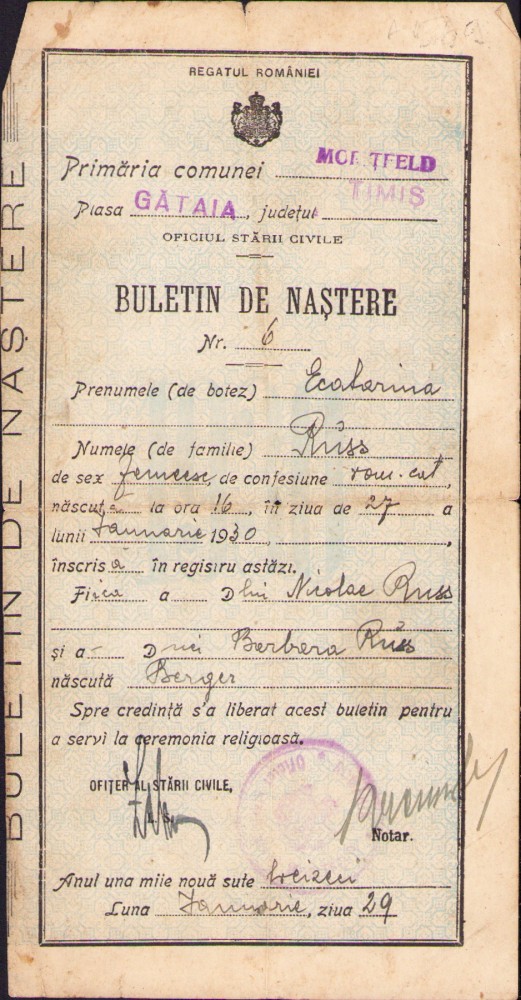 REGATUL ROMÂNIEI
Primăria comunei MORIȚFELD
Plasa GĂTAIA, județul TIMIȘ
OFICIUL STĂRII CIVILE
BULETIN DE NAȘTERE
Nr. 6
Prenumele (de botez) Ecatarina
Numele (de familie) Rŭss
de sex femeesc, de confesiune rom. cat,
născută la ora 16, în ziua de 27 a
lunii Ianuarie 1930,
înscrisă în registru astăzi.
Fiica a Dlui Nicolae Russ
și a Dnei Berbera Rŭss
născută Berger
Spre credință s'a liberat acest buletin pentru
a servì la ceremonia religioasă.
OFIȚER AL STĂRII CIVILE,
L. S.
Notar.
Anul una mile nouă sute treizeci
Luna Ianuarie, ziua 29
BULETIN DE NAȘTERE